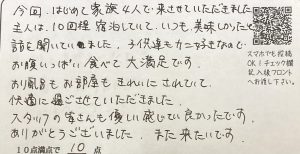 今回、はじめて家族4人で来させていただきました。
主人は、10回程宿泊していて、いつも、美味しかったと
話を聞いていました。子供達もカニ好きなので、
お腹いっぱい食べて大満足です。
お風呂もお部屋もきれいにされていて、
快適に過ごさせていただきました。
スタッフの皆さんも優しい感じで良かったです。
ありがとうございました。また来たいです。
10点満点で 10 点
スマホでも投稿
OK!チェック欄
記入後フロント
へお渡し下さい。